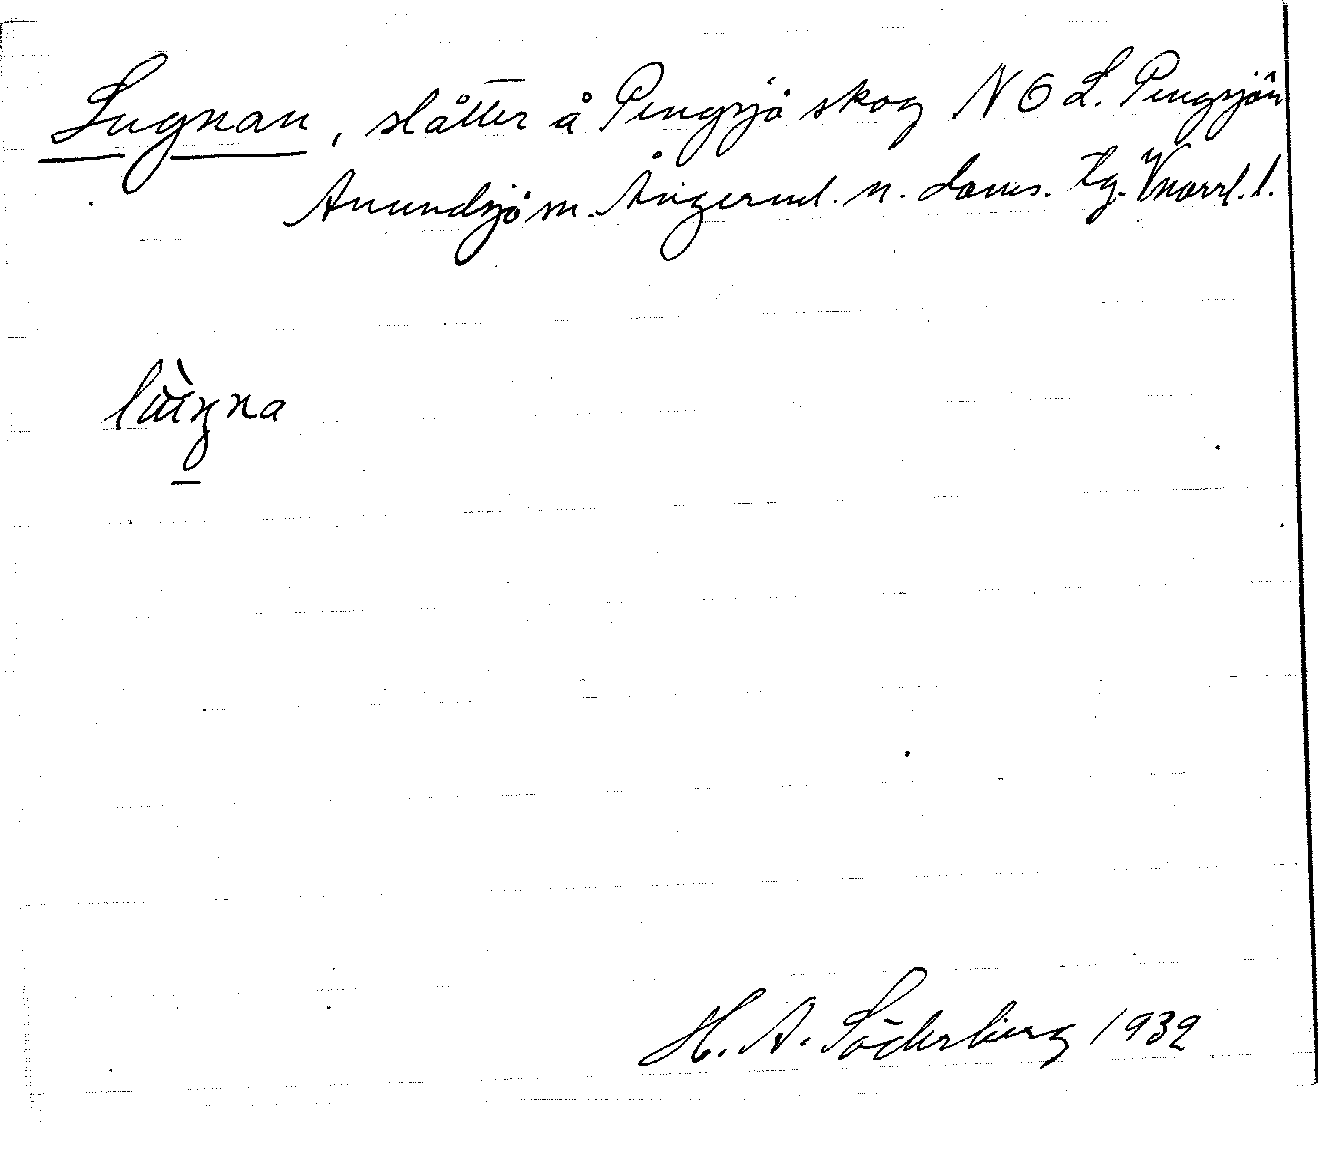 Lugnan, slåtter å Pengsjö skog NO L. Pengsjön
Anundsjö sn. Ångerml. n. doms. tg. Vnorrl. l.
H. A. Söderberg 1932